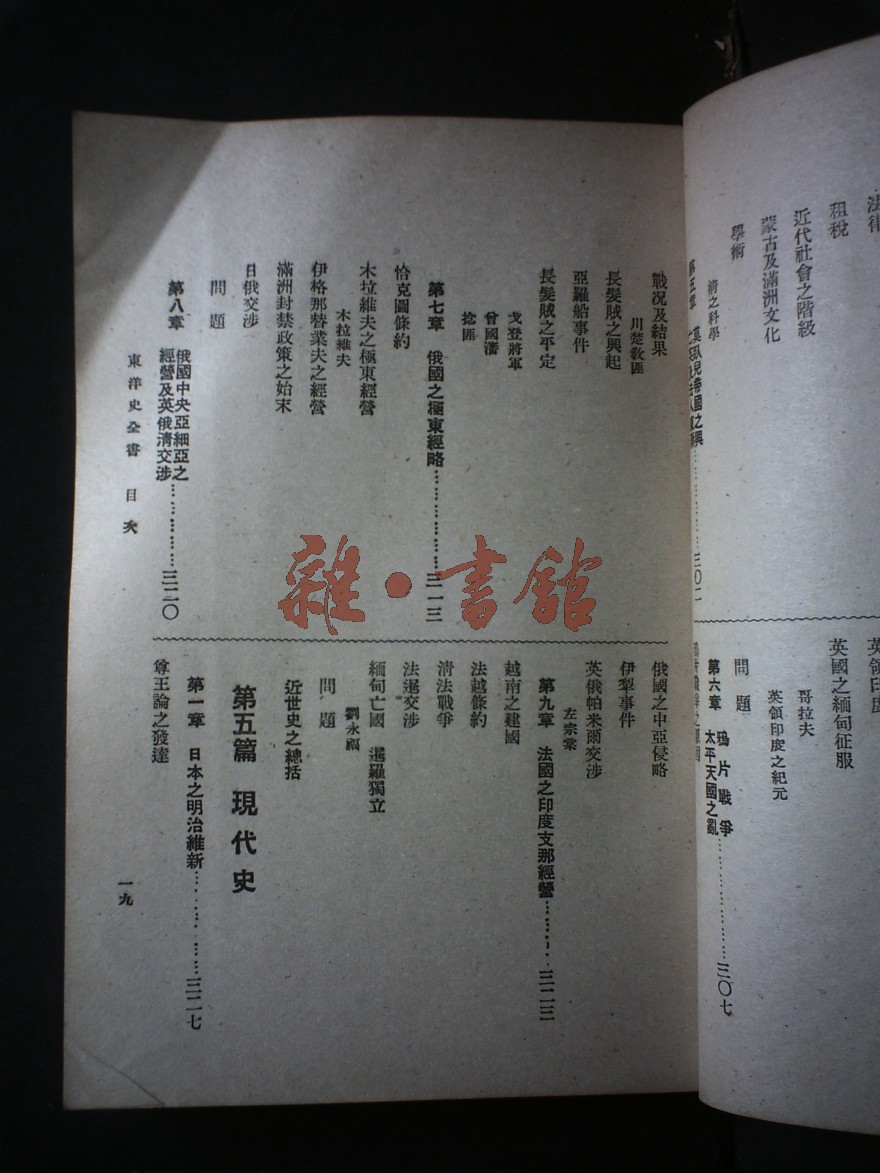 法律
租稅
近代社會之階級
蒙古及滿洲文化
學術
清之科學
英領印度
英國之緬甸征服
哥拉夫
英領印度之紀元
問題
第六章 鴉片戰爭
太平天國之亂……………三〇七
戰况及結果
川楚敎匪
長髮賊之興起
亞羅船事件
長髮賊之平定
戈登將軍
曾國藩
捻匪
第七章 俄國之極東經略………………三一三
恰克圖條約
木拉維夫之極東經營
木拉維夫
伊格那替業夫之經營
滿洲封禁政策之始末
日俄交涉
問題
第八章 俄國中央亞細亞之
經營及英俄清交涉…………三二〇
俄國之中亞侵略
伊犁事件
英俄帕米爾交涉
左宗棠
第九章 法國之印度支那經營………三二三
越南之建國
法越條約
清法戰爭
法暹交涉
緬甸亡國 暹羅獨立
劉永福
問題
近世史之總括
第五篇 現代史
第一章 日本之明治維新…………三二七
尊王論之發達
東洋史全書 目次
一九
雜·書館